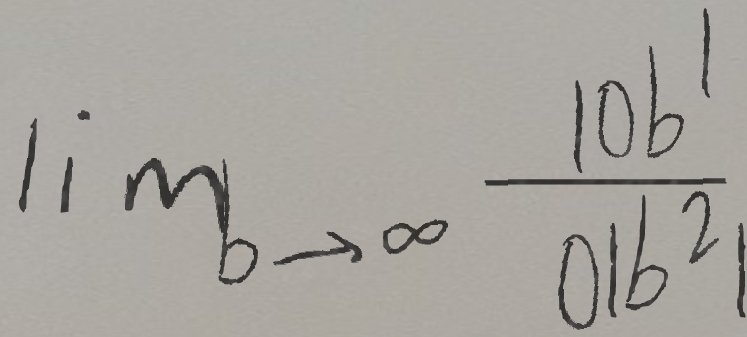 lim_{b→∞} \frac{10b^1}{01b^2 1}